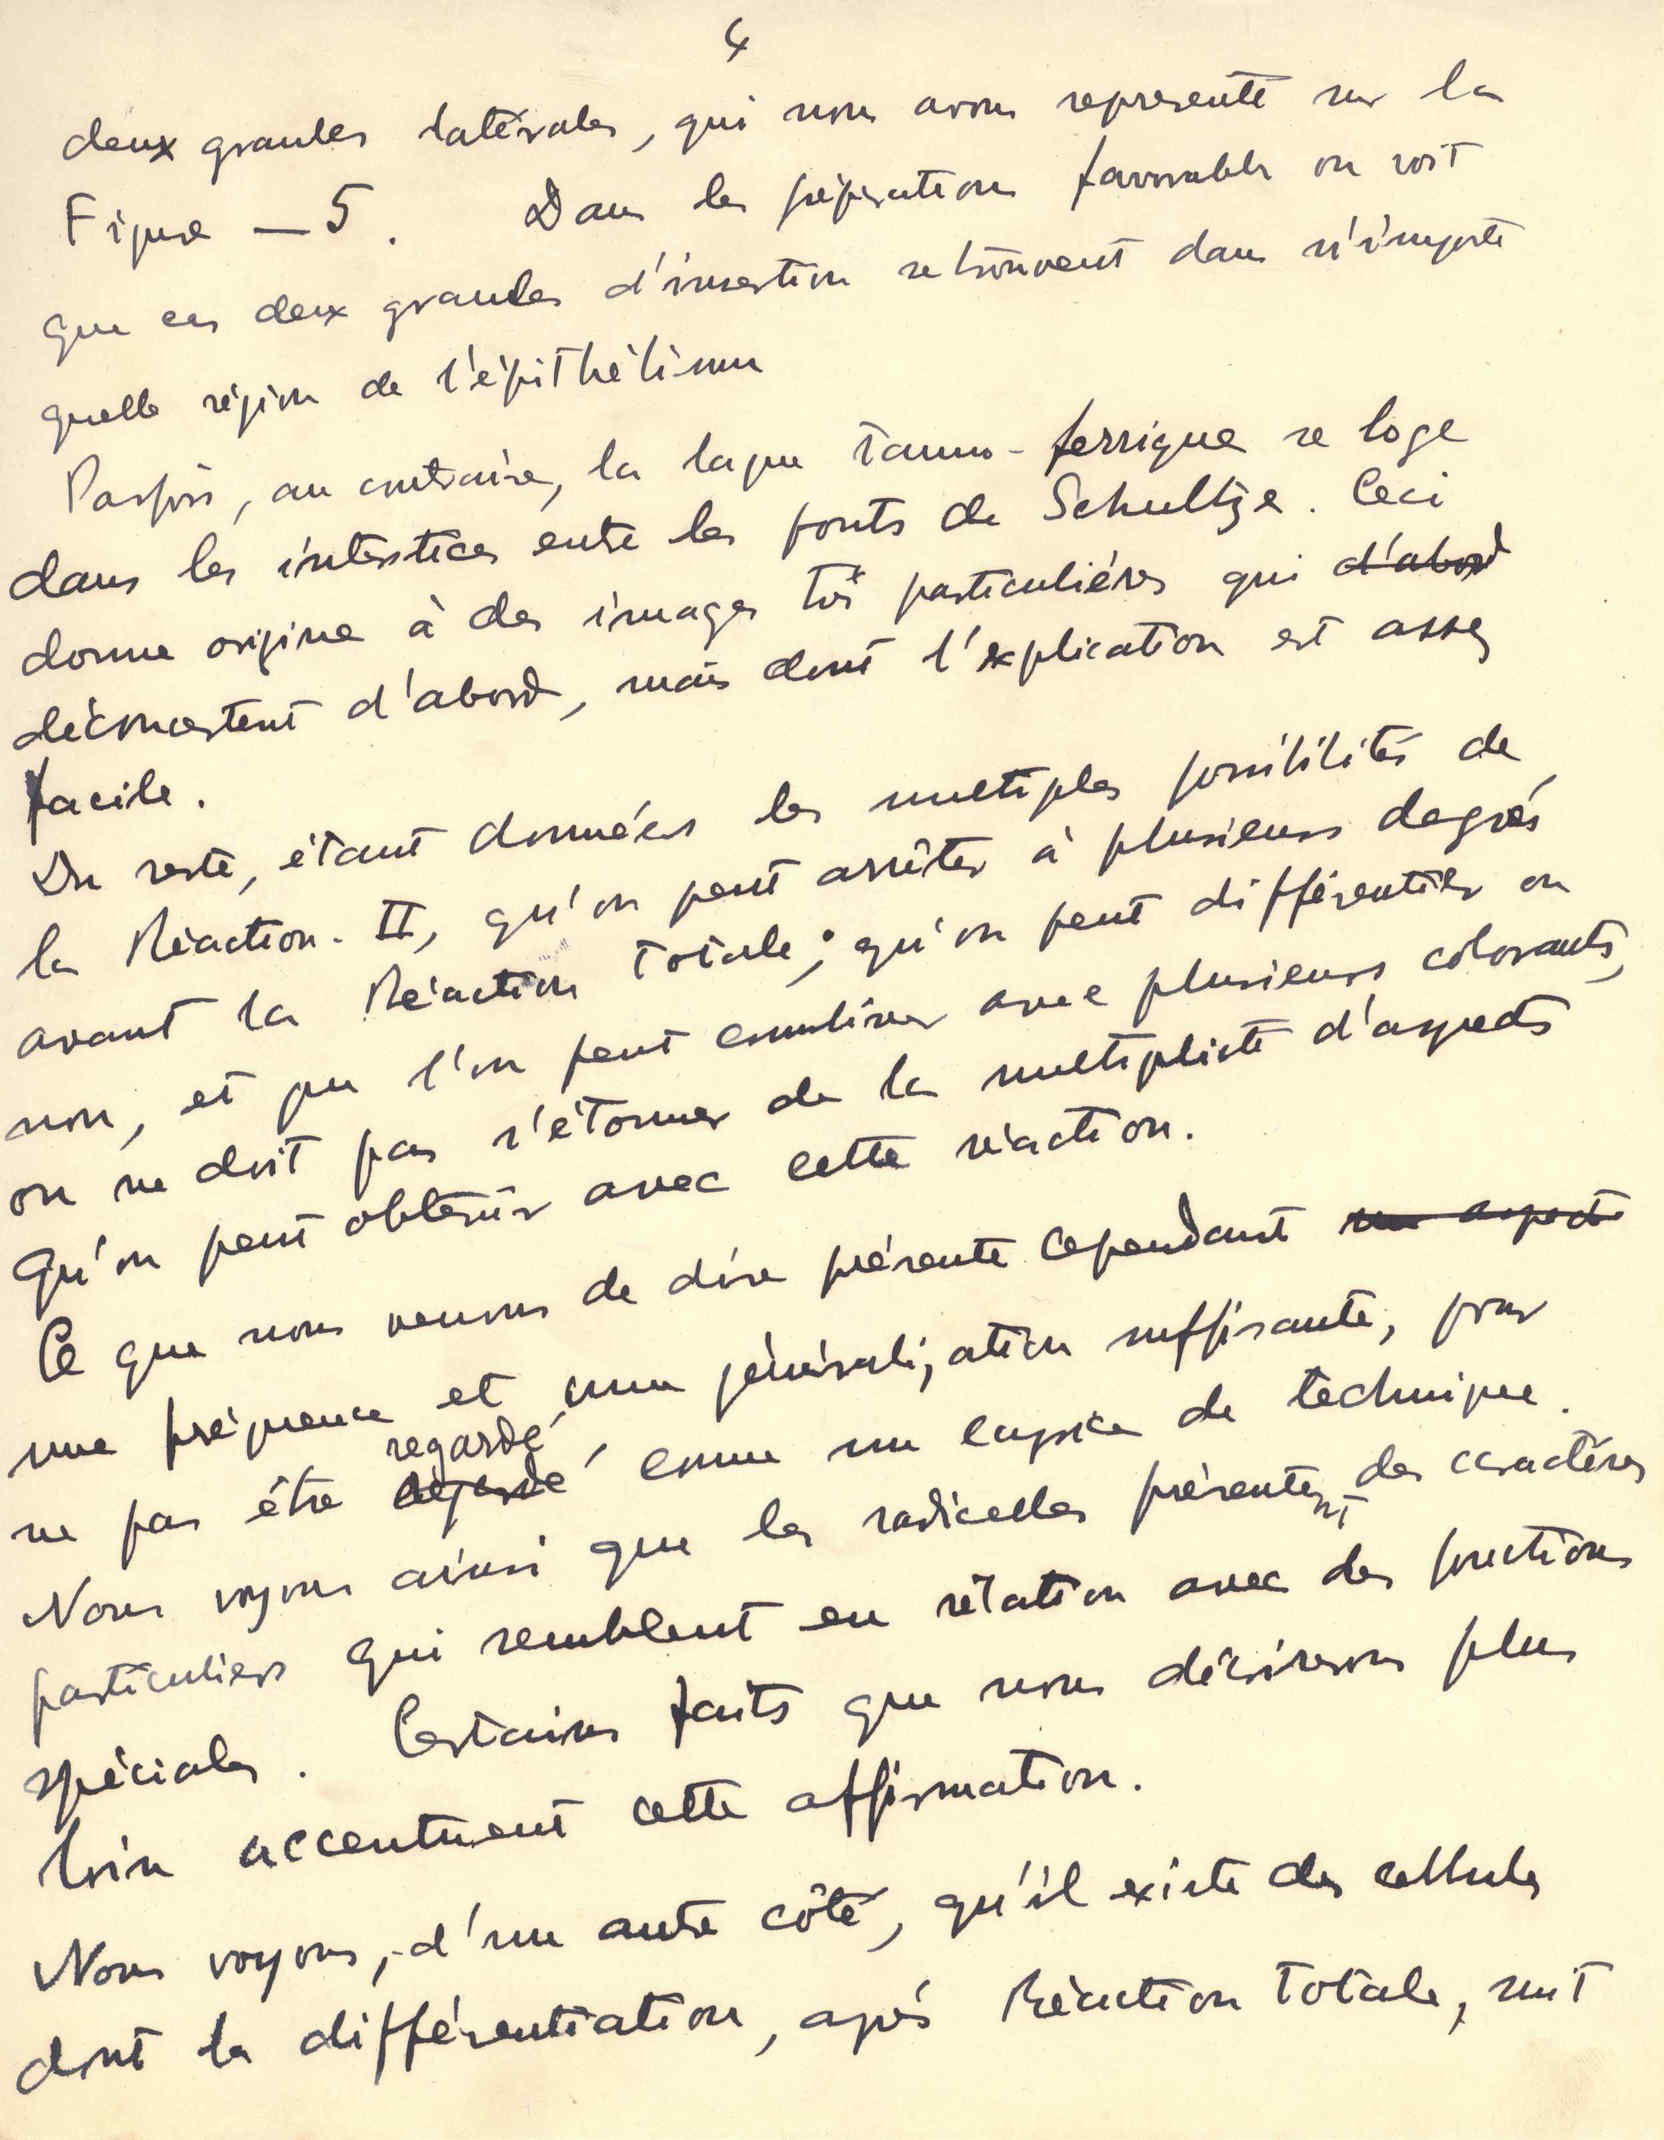 4
deux grandes latérales, qui nous avons representé sur la
Figure — 5. Dans les préparations favorables on voit
que ces deux grandes d'insertion se trouvent dans n'importe
quelle région de l'épithélium
Parfois, au contraire, la laque tanno-ferrique se loge
dans les interstices entre les ponts de Schultze. Ceci
donne origine à des images très particulières qui d'abord
déconcertent d'abord, mais dont l'explication est assez
facile.
Du reste, étant données les multiples possibilités de
la Réaction-II, qu'on peut arrêter à plusieurs degrés
avant la Réaction Totale; qu'on peut différentier ou
non, et que l'on peut combiner avec plusieurs colorants,
on ne doit pas s'étonner de la multiplicité d'aspects
qu'on peut obtenir avec cette réaction.
Ce que nous venons de dire présente cependant un aspect
une fréquence et une généralization suffisante, pour
ne pas être regardé comme un caprice de technique.
Nous voyons ainsi que les radicelles présentent des caractères
particuliers qui semblent en rélation avec des fonctions
spéciales. Certains faits que nous décrirons plus
loin accentuent cette affirmation.
Nous voyons, d'un autre côté, qu'il existe des cellules
dont la différentiation, après Réaction Totale, suit